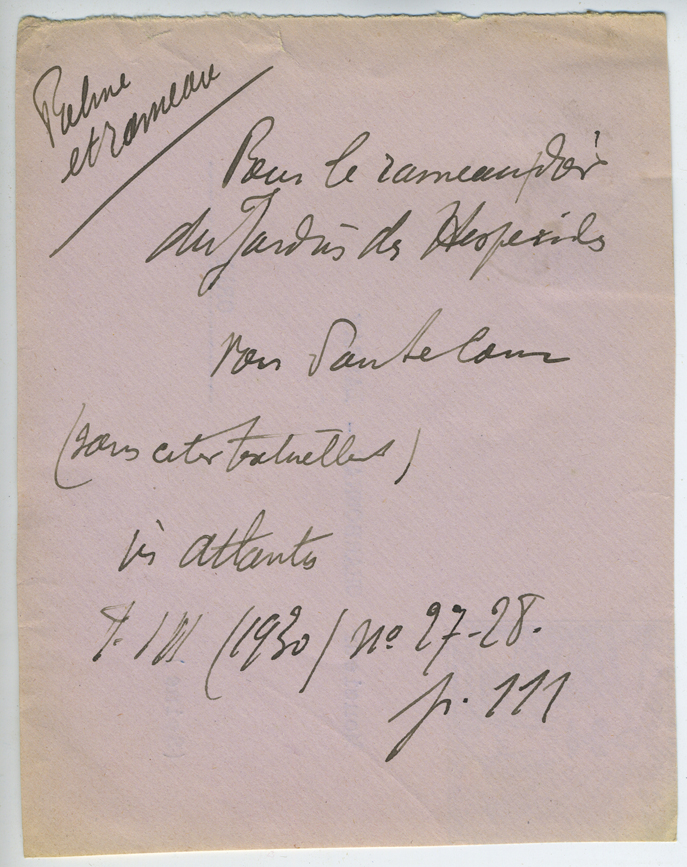 Palme
et rameau
Pour le rameau d'or
du Jardin des Hespérides
voir
(sans citer textuellement)
in Atlantis
t. III (1930) no 27-28.
p. 111